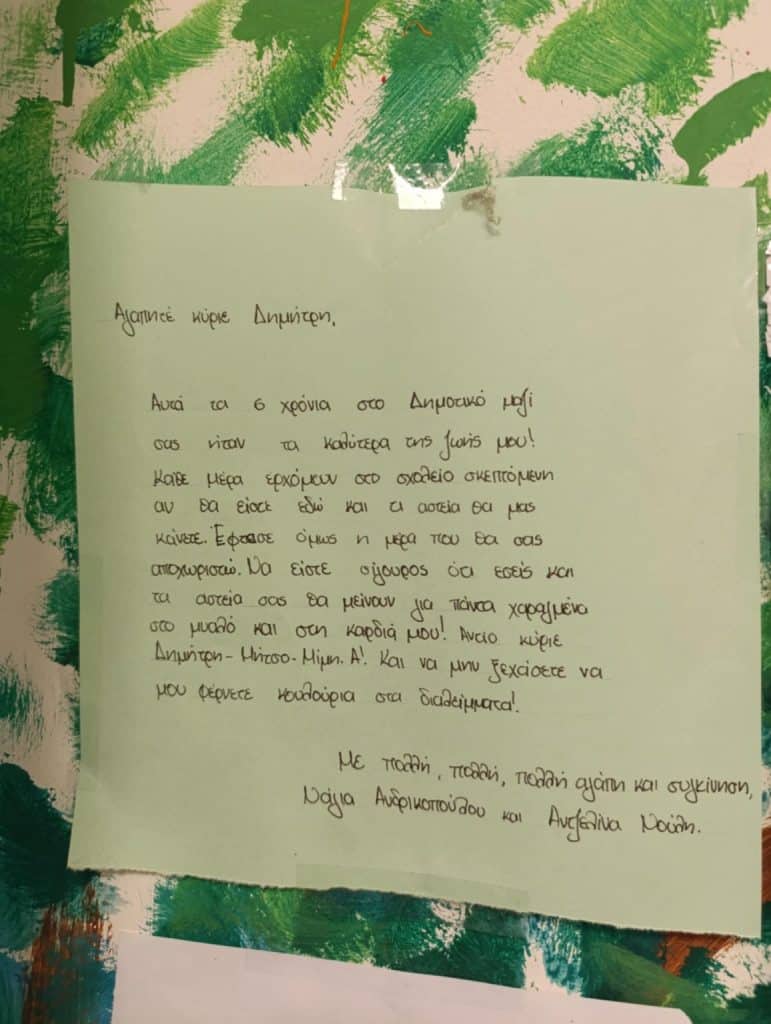 Αγαπητέ κύριε Δημήτρη,
Αυτά τα 6 χρόνια στο Δημοτικό μαζί
σας ήταν τα καλύτερα της ζωής μου!
Κάθε μέρα ερχόμουν στο σχολείο σκεπτόμενη
αν θα είστε εδώ και τι αστεία θα μας
κάνετε. Έφτασε όμως η μέρα που θα σας
αποχωριστώ. Να είστε σίγουρος ότι εσείς και
τα αστεία σας θα μείνουν για πάντα χαραγμένα
στο μυαλό και στη καρδιά μου! Αντίο κύριε
Δημήτρη-Μήτσο-Μίμη. Α! Και να μην ξεχάσετε να
μου φέρνετε κουλούρια στα διαλείμματα!
Με πολλή, πολλή, πολλή αγάπη και συγκίνηση,
Νάγια Ανδρικοπούλου και Αντζελίνα Νούλη.